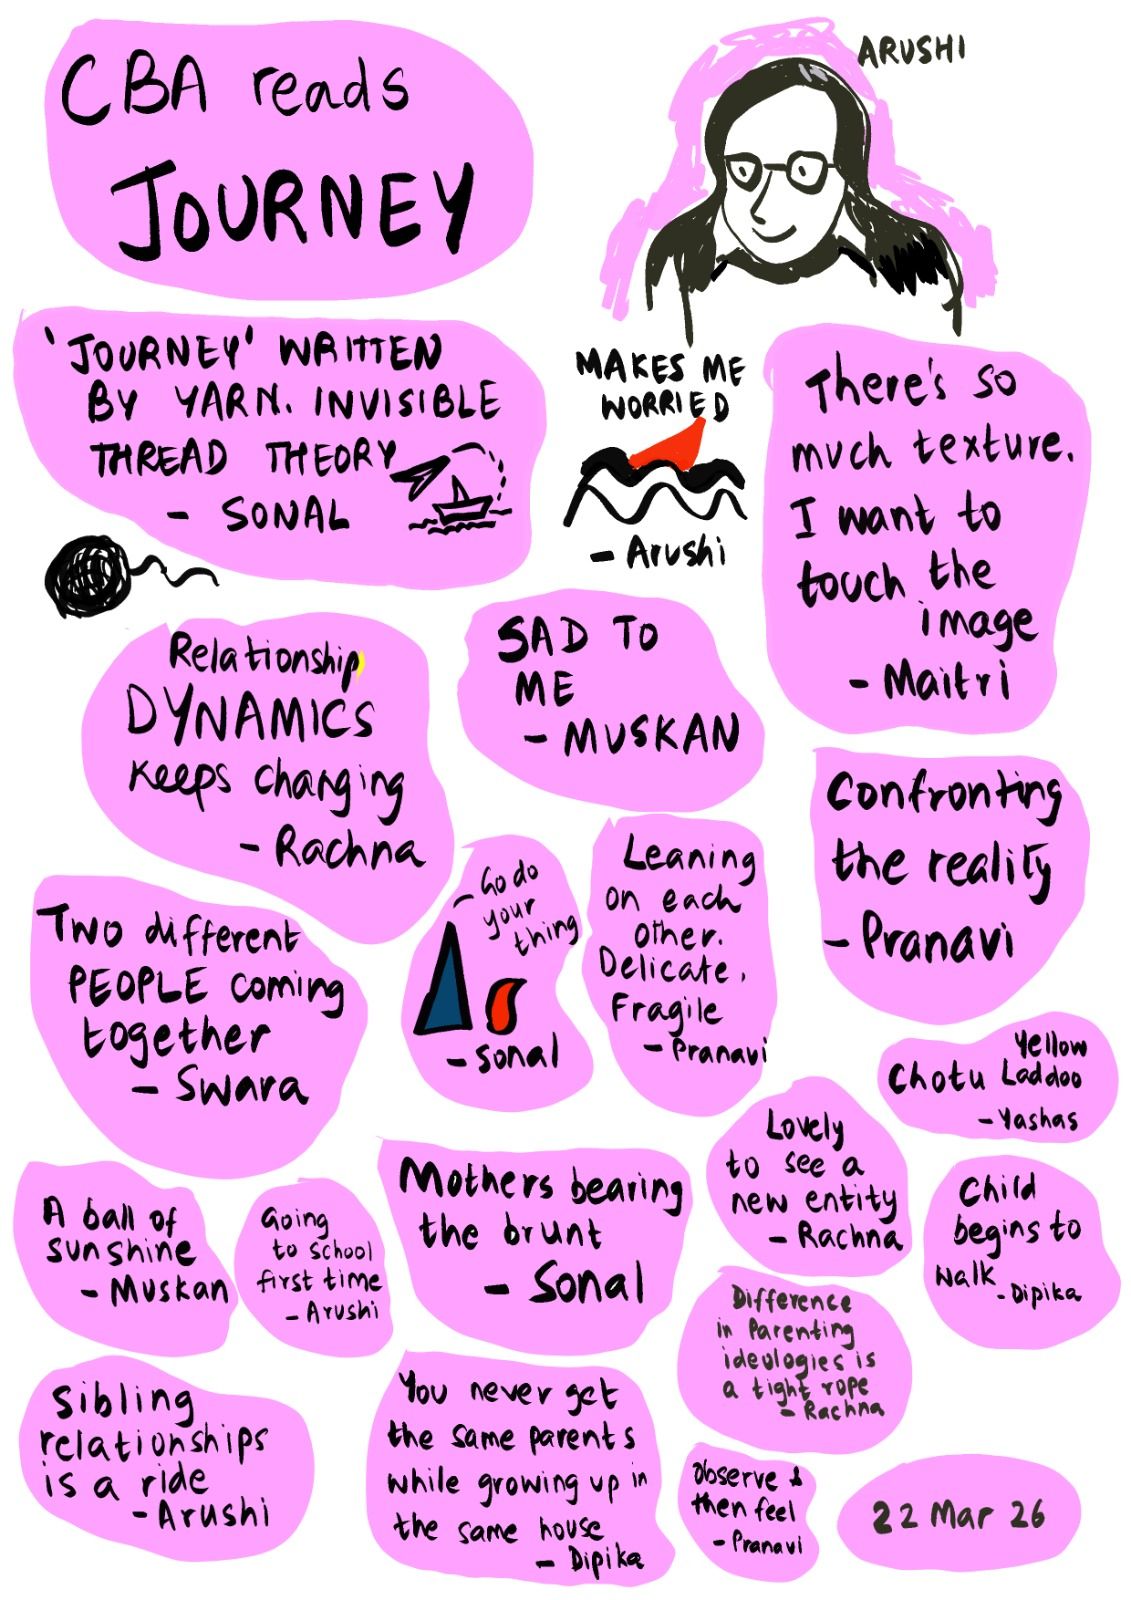 CBA reads
JOURNEY
ARUSHI
'JOURNEY' WRITTEN
BY YARN. INVISIBLE
THREAD THEORY
- SONAL
MAKES ME
WORRIED
- Arushi
There's so
much texture.
I want to
touch the
image
- Maitri
Relationship
DYNAMICS
keeps changing
- Rachna
SAD TO
ME
- MUSKAN
Confronting
the reality
- Pranavi
Two different
PEOPLE coming
together
- Swara
- Go do
your
thing
- Sonal
Leaning
on each
other.
Delicate,
Fragile
- Pranavi
Yellow
Chotu Laddoo
- Yashas
Lovely
to see a
new entity
- Rachna
Child
begins to
walk
- Dipika
A ball of
sunshine
- Muskan
Going
to school
first time
- Arushi
Mothers bearing
the brunt
- Sonal
Difference
in Parenting
ideologies is
a tight rope
- Rachna
Sibling
relationships
is a ride
- Arushi
You never get
the same parents
while growing up in
the same house
- Dipika
Observe &
then feel
- Pranavi
22 Mar 26